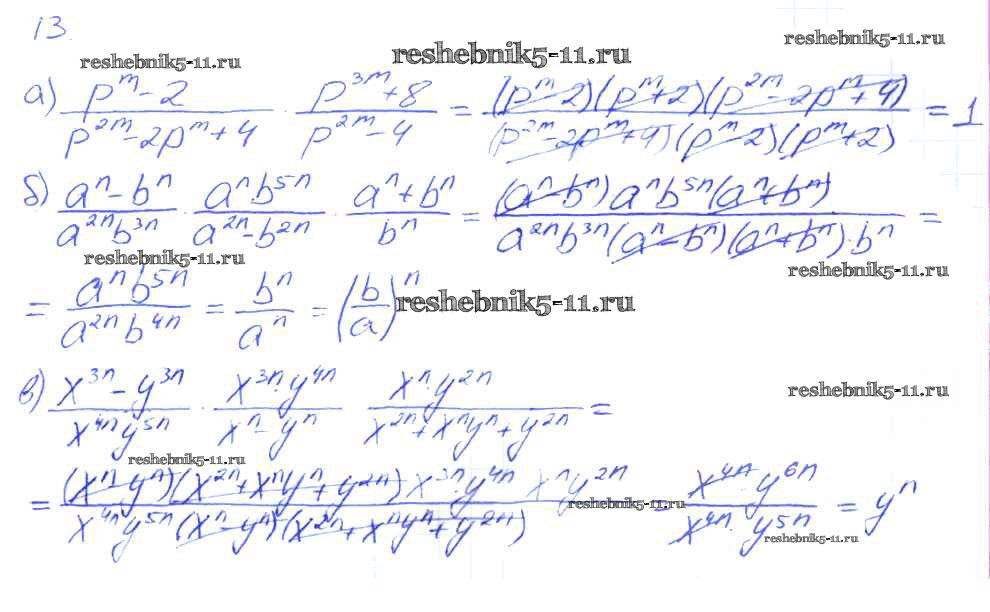 13.
reshebnik5-11.ru reshebnik5-11.ru reshebnik5-11.ru
а) (p^m - 2)/(p^{2m} - 2p^m + 4) · (p^{3m} + 8)/(p^{2m} - 4) = ((p^m - 2)(p^m + 2)(p^{2m} - 2p^m + 4))/((p^{2m} - 2p^m + 4)(p^m - 2)(p^m + 2)) = 1
б) (a^n - b^n)/(a^{2n} b^{3n}) · (a^n b^{5n})/(a^{2n} - b^{2n}) · (a^n + b^n)/(b^n) = ((a^n - b^n) a^n b^{5n} (a^n + b^n))/(a^{2n} b^{3n} (a^n - b^n)(a^n + b^n) · b^n) =
reshebnik5-11.ru reshebnik5-11.ru
= (a^n b^{5n})/(a^{2n} b^{4n}) = (b^n)/(a^n) = (b/a)^n reshebnik5-11.ru
в) (x^{3n} - y^{3n})/(x^{4n} y^{5n}) · (x^{3n} · y^{4n})/(x^n - y^n) (x^n · y^{2n})/(x^{2n} + x^n y^n + y^{2n}) =
reshebnik5-11.ru
reshebnik5-11.ru
= ((x^n - y^n)(x^{2n} + x^n y^n + y^{2n}) x^{3n} · y^{4n} x^n y^{2n})/(x^{4n} y^{5n} (x^n - y^n)(x^{2n} + x^n y^n + y^{2n})) = (x^{4n} · y^{6n})/(x^{4n} · y^{5n}) = y^n
reshebnik5-11.ru
reshebnik5-11.ru